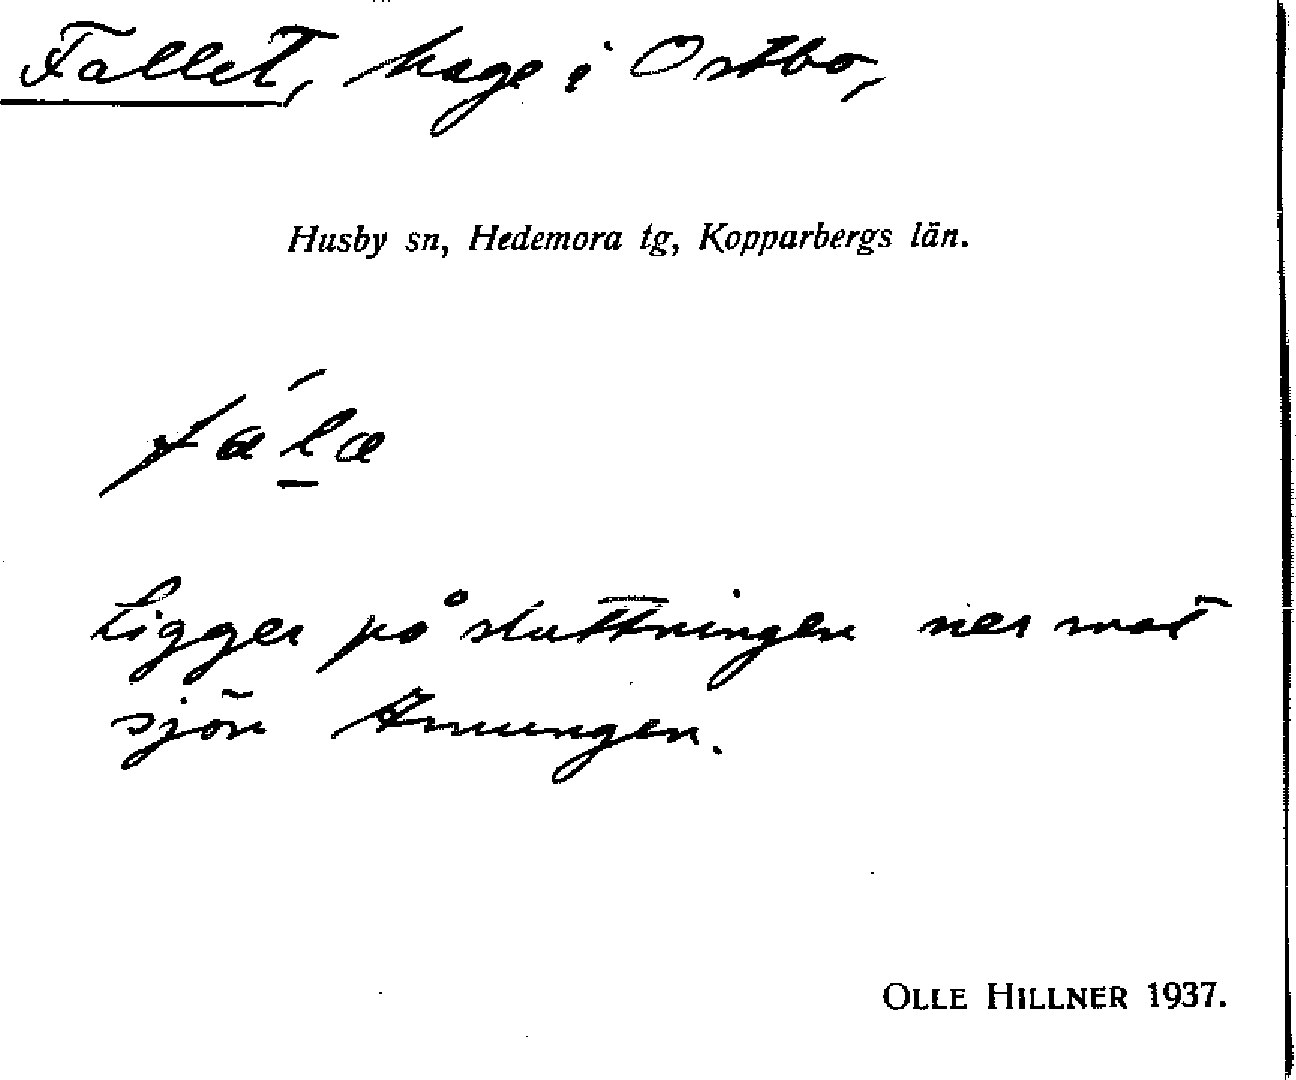 Fallet, hage i Ostbo,
Husby sn, Hedemora tg, Kopparbergs län.
Ligger på sluttningen ner mot
sjön Amungen.
OLLE HILLNER 1937.